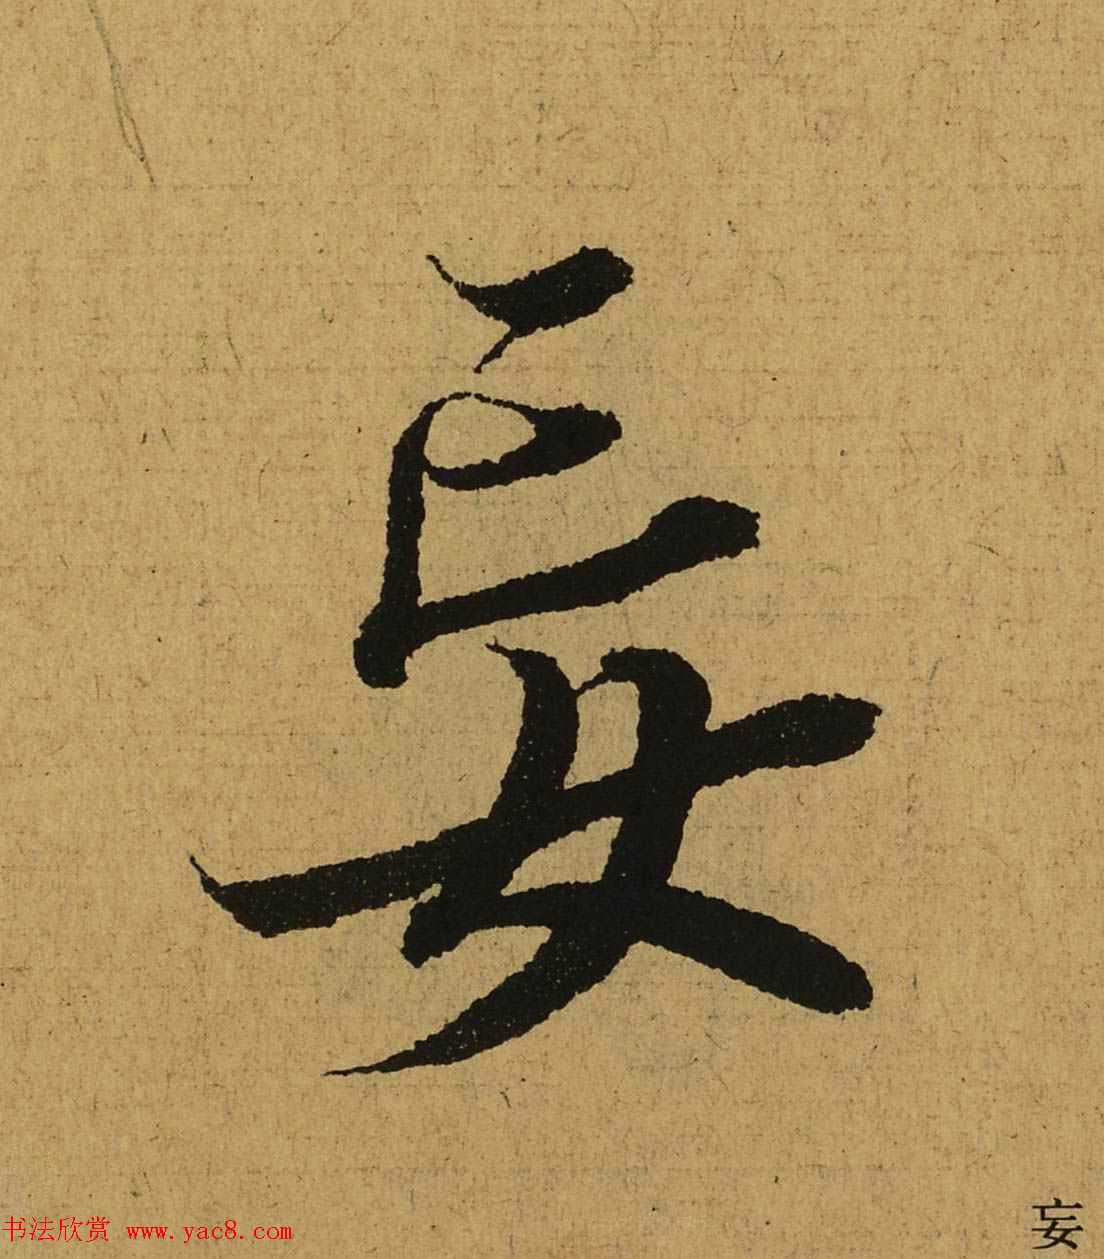 妄
书法欣赏 www.yac8.com
妄